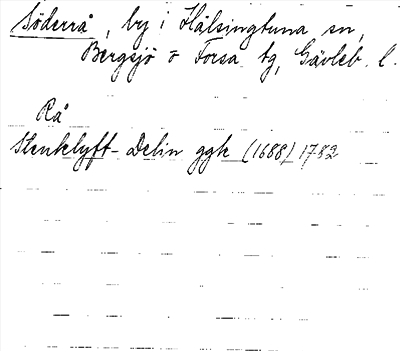 Söderrå, by i Hälsingtuna sn,
Bergsjö o Forsa tg, Gävleb. l.
Rå
Stenklyft- Delin ggk (1688) 1782